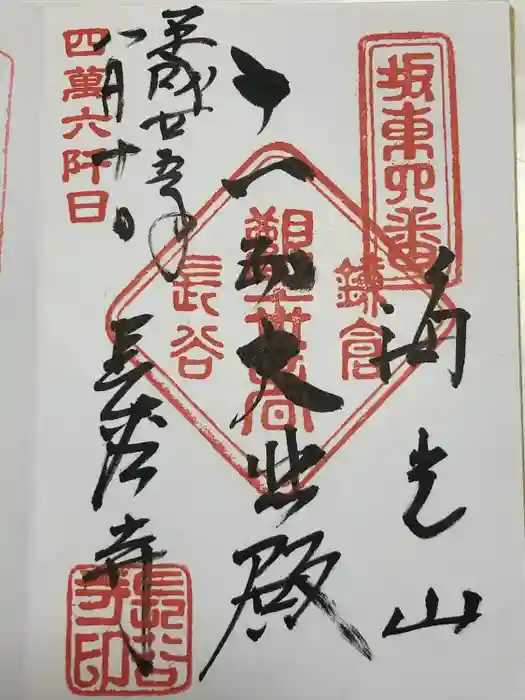 坂東四番
海光山
鎌倉
観世音
長谷
十一面大悲殿
四萬六阡日
平成廿五年
八月十日
長谷寺
長谷寺印